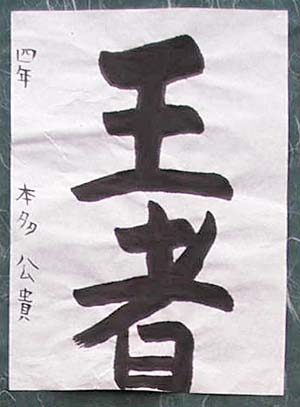 王者
四年 本多 公貴